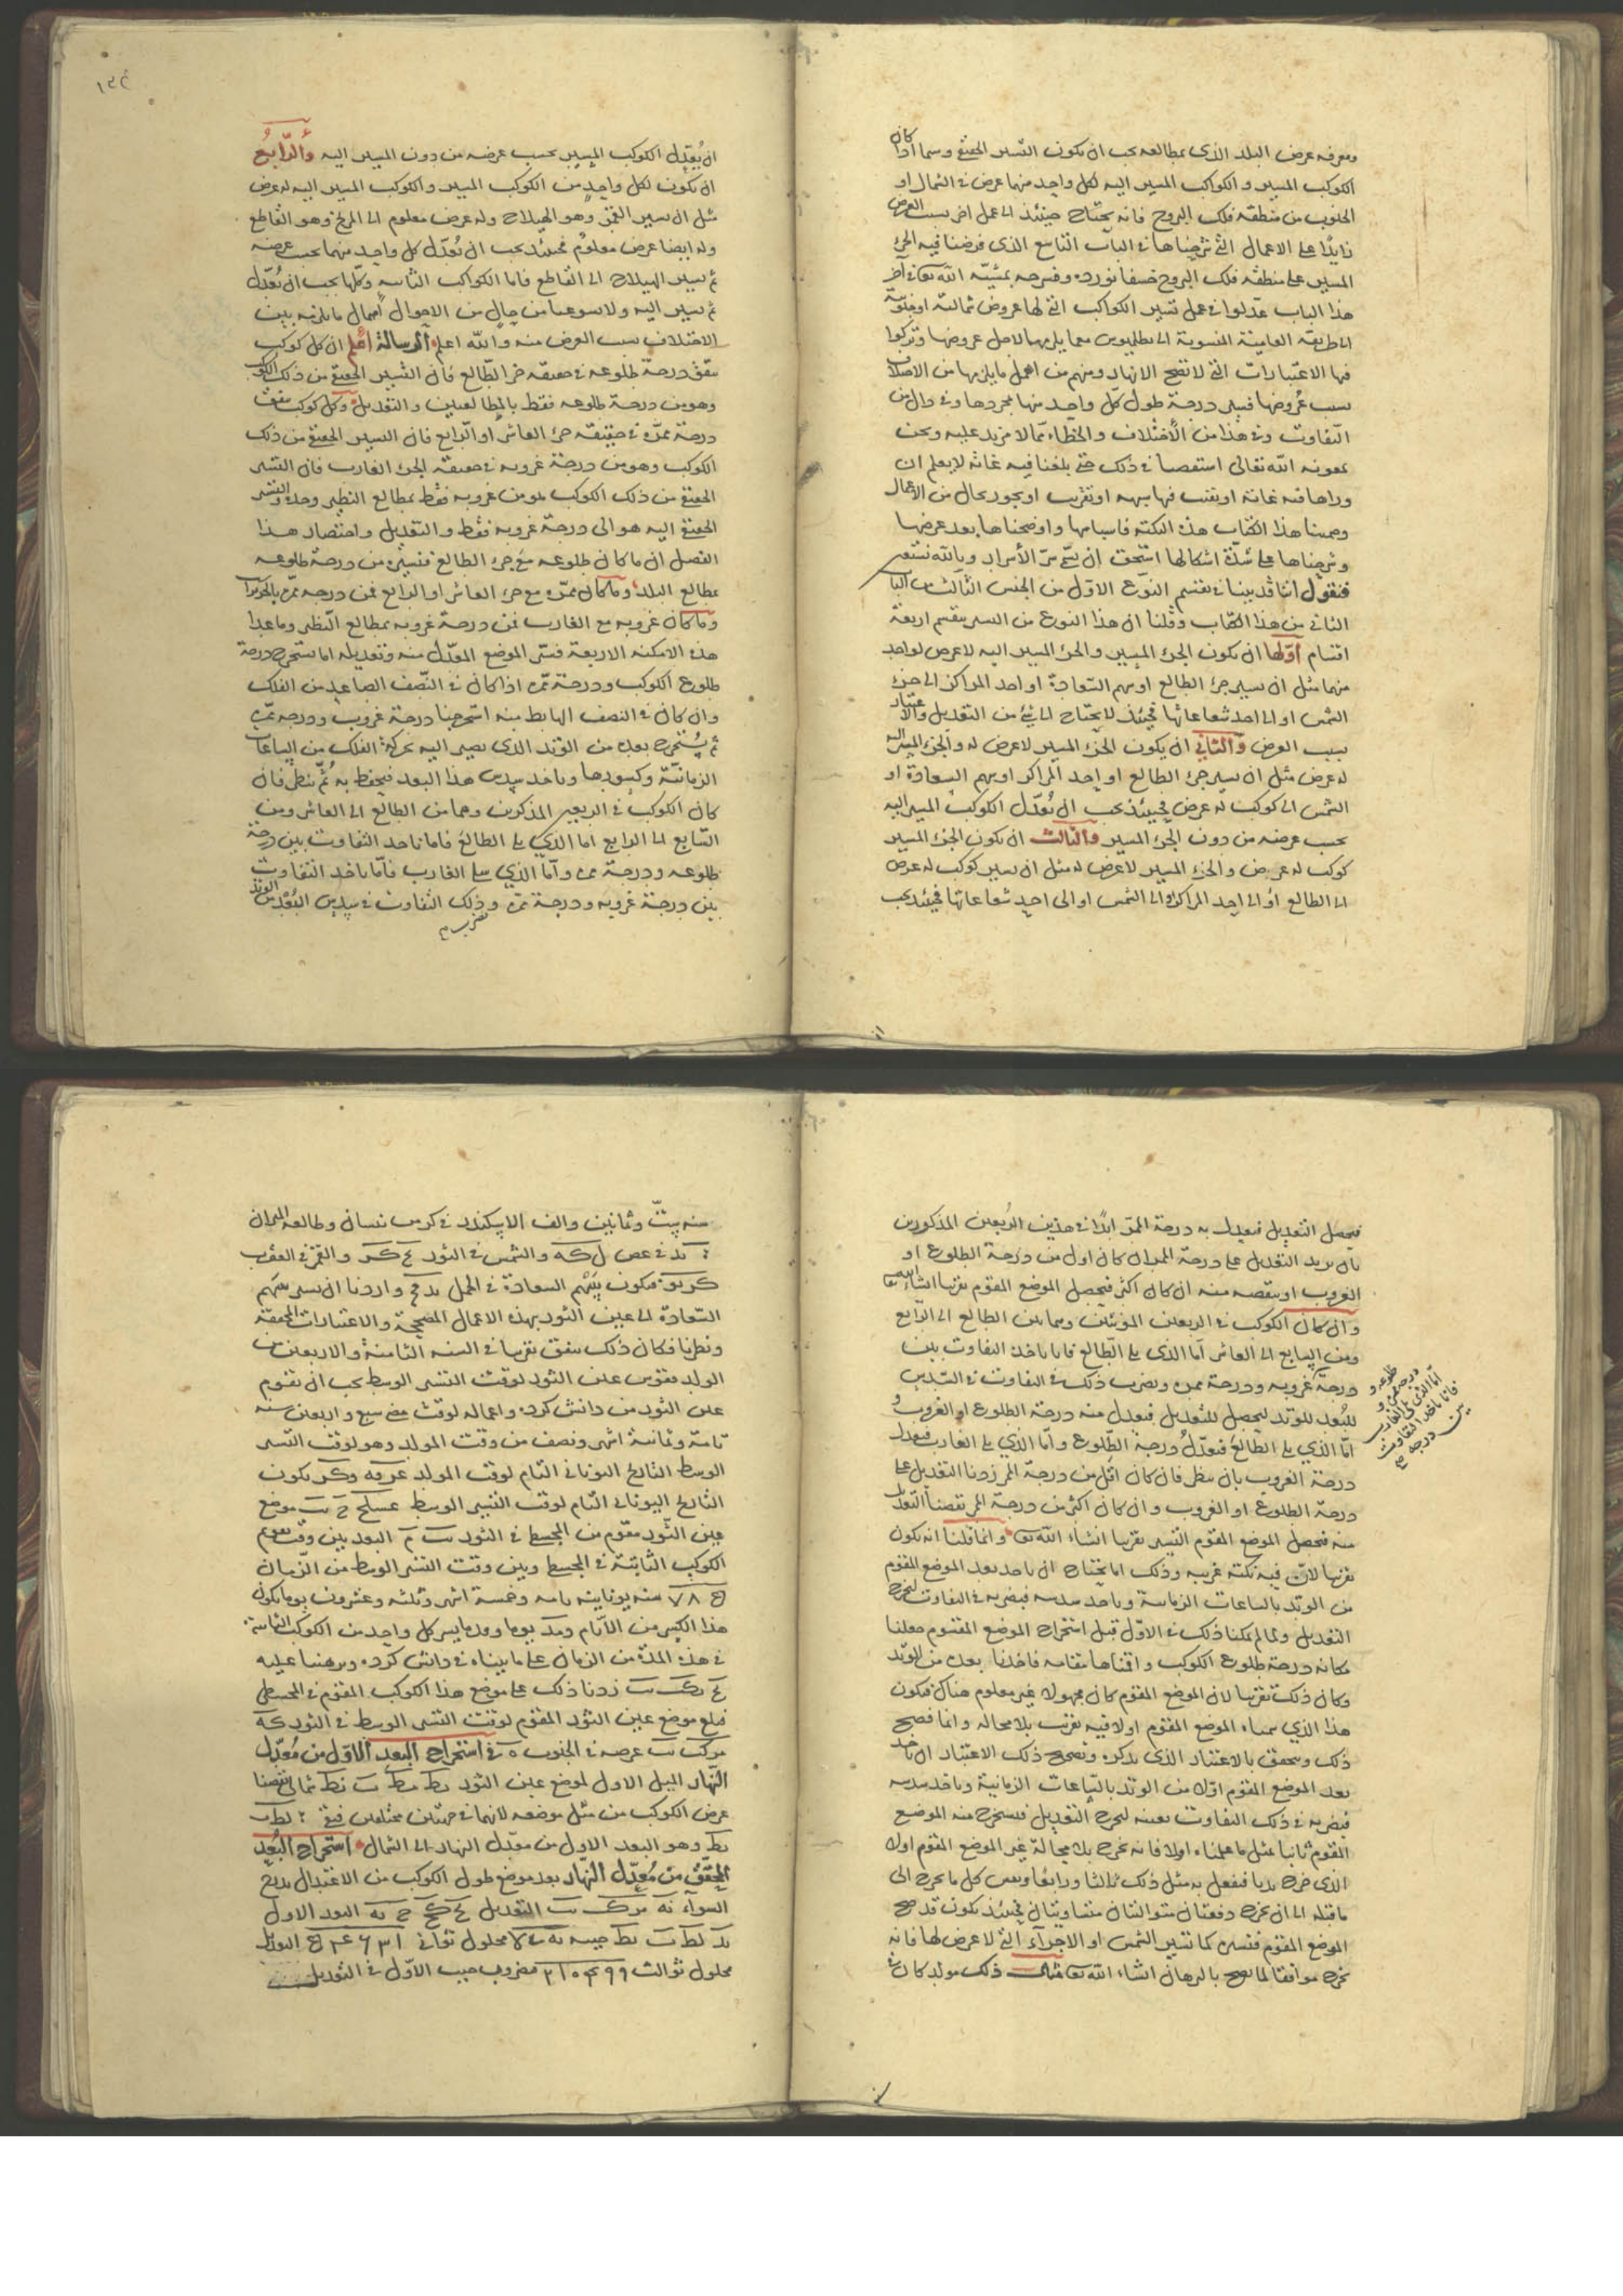 ومعرفه عرض البلد الذى بمطالعه يجب ان يكون التسير الحقيقى وسما اذا كان
الكوكب المسير و الكواكب المسير اليه لكل واحد منهما عرض فى الشمال او
الجنوب من منطقه فلك البروج فانه يحتاج حينئذ الى عمل اخر بسبب العرض
زايدا على الاعمال التى شرحناها فى الباب التاسع الذى فرضنا فيه الجزء
المسير على منطقه فلك البروج حسبما نورده ونشرحه بمشيّه الله تعالى فى آخر
هذا الباب عدلوا فى عمل تسير الكواكب التى لها عروض شمالية او جنوبية
الى طريقه العامية المنسوبة الى بطليموس مما يلزمها لاجل عروضها وتركوا
فيها الاعتبارات التى لا تصح الا بها ومنهم من اهمل ما يلزمها من الاختلاف
بسبب عروضها فسير درجة طول كل واحد منها بمجردها وفى
التفاوت وفى هذا من الاختلاف والخطاء ما لا مزيد عليه ونحن
بمعونه الله تعالى استقصينا فى ذلك حتى بلغنا فيه غاية لا يعلم ان
وراها غاية او بقيت فيها شبهه او تقريب او يجوز بحال من الاعمال
وضمنا هذا الكتاب هذه النكتة باسبابها واوضحناها بعد عرضها
وشرحناها على شدّة اشكالها استحق ان يسمى سرّ الأسرار وبالله نستعين
فنقول انّا قد بينا فى تقسيم النوع الاوّل من الجنس الثالث من الباب
الثانى من هذا الكتاب وقلنا ان هذا النوع من التسير ينقسم اربعة
اقسام اوّلها ان يكون الجزء المسير والجزء المسير اليه لا عرض لواحد
منهما مثل ان نسير جزء الطالع او سهم السعادة او احد المراكز الى جزء
الشمس او الى احد شعاعاتها فحينئذ لا يحتاج الى شئ من التعديل والاعتبار
بسبب العرض والثانى ان يكون الجزء المسير لا عرض له والجزء المسير اليه
له عرض مثل ان نسير جزء الطالع او احد المراكز او سهم السعادة او
الشمس الى كوكب له عرض فحينئذ يجب ان نُعدّل الكوكب المسير اليه
بحسب عرضه من دون الجزء المسير والثالث ان يكون الجزء المسير
كوكب له عرض والجزء المسير لا عرض له مثل ان نسير كوكب له عرض
الى الطالع او الى احد المراكز او الى الشمس او الى احد شعاعاتها فحينئذ يجب
١٣٤
ان يُعدّل الكوكب المسير بحسب عرضه من دون المسير اليه والرّابع
ان يكون لكل واحد من الكوكب المسير والكوكب المسير اليه له عرض
مثل ان نسير القمر وهو الهيلاج وله عرض معلوم الى المريخ وهو القاطع
وله ايضا عرض معلوم فحينئذ يجب ان نُعدّل كل واحد منهما بحسب عرضه
ثم نسير الهيلاج الى القاطع فاما الكواكب الثابته وكلها يجب ان نُعدّل
ثم نسير اليه ولا يسوغنا من حال من الاحوال اهمال ما يلزمه بين
الاختلاف بسبب العرض منه والله اعلم الرسالة اعلم ان كل كوكب
يتفق درجة طلوعه فى حقيقه جزء الطالع فان التسير الحقيقى من ذلك الكوكب
وهو من درجة طلوعه فقط بالمطالعين والتعديل وكل كوكب يتفق
درجة ممرّه فى حقيقه جزء العاشر او الرابع فان التسير الحقيقى من ذلك
الكوكب وهو من درجة غروبه فى حقيقه الجزء الغارب فان التسير
الحقيقى من ذلك الكوكب هو من غروبه فقط بمطالع النظير وحده والتسير
الحقيقى اليه هو الى درجة غروبه فقط والتعديل واختصار هذا
الفصل ان ما كان طلوعه مع جزء الطالع فتسيره من درجة طلوعه
بمطالع البلد وما كان ممرّه مع جزء العاشر او الرابع فمن درجه ممرّه
وما كان غروبه مع الغارب فمن درجة غروبه بمطالع النظير وما عدا
هذه الامكنه الاربعة فسير الموضع المعدّل منه وتعديله انا نستخرج درجة
طلوع الكوكب ودرجة ممره اذا كان فى النصف الصاعد من الفلك
وان كان فى النصف الهابط منه استخرجنا درجة غروبه ودرجة ممره
ثم يُستخرج بعده من الوتد الذى يصير اليه بحركة الفلك من الساعات
الزمانيّة وكسورها وناخذ سدس هذا البعد فيحفظ به ثُمّ ننظر فان
كان الكوكب فى الربعين المذكورين وهما من الطالع الى العاشر ومن
السّابع الى الرابع اما الذي يلى الطالع فانا ناخذ التفاوت بين درجة
طلوعه ودرجة ممره وامّا الذي يلى الغارب فانّا ناخذ التفاوت
بين درجة غروبه ودرجة ممرّه وذلك التفاوت فى سدس البُعد من الوتد
فيحصل التعديل فيعدل به درجة الممرّ ابدًا فى هذين الرُبعين المذكورين
بان نزيد التعديل على درجة الممر ان كان اول من درجة الطلوع او
الغروب او ينقصه منه ان كان اكثر فيحصل الموضع المقوم تقريبا انشاء الله تعا
وان كان الكوكب فى الربعين المؤنثين وهما من الطالع الى الرّابع
ومن السابع الى العاشر امّا الذى يلى الطالع فانا ناخذ التفاوت بين
درجة غروبه ودرجة ممره ونضرب ذلك فى التفاوت فى السّدس
للبُعد للوتد ليحصل للتعديل فيعدل منه درجة الطلوع او الغروب و
امّا الذي يلى الطالع فنعدّلُ درجة الطّلوع وامّا الذي يلى الغارب فنعدل
درجة الغروب بان ننظر فان كان اقل من درجة الممر زدنا التعديل على
درجة الطلوع او الغروب وان كان اكثر من درجة الممر نقصنا التعديل
منه فيحصل الموضع المقوم التسير تقريبا انشاء الله تعا وانما قلنا انه يكون
تقريبا لانّ فيه نكته غريبه وذلك انا نحتاج ان ناخذ بعد الموضع المقوم
من الوتد بالساعات الزمانية وناخذ سدسه فيضربه فى التفاوت ليخرج
التعديل ولما لم يمكنا ذلك فى الاوّل قبل استخراج الموضع المقوم جعلنا
مكانه درجة طلوع الكوكب واقمناها مقامه فاخذنا بعده من الوتد
وكان ذلك تقريبا لان الموضع المقوم كان مجهولا غير معلوم هناك فيكون
هذا الذي سميناه الموضع المقوم اولا فيه تقريب بلا محاله وانما فصح
ذلك ويتحقق بالاعتبار الذى نذكره وتصحيح ذلك الاعتبار ان ناخذ
بعد الموضع المقوم اوّلا من الوتد بالسّاعات الزمانية وناخذ سدسه
فيضربه فى ذلك التفاوت بعينه ليخرج التعديل فيستخرج منه الموضع
المقوم ثانيا بمثل ما عملناه اولا فانه يخرج بلا محالة غير الموضع المقوم اولا
الذى خرج بديا فنفعل به مثل ذلك ثالثا ورابعًا ونقيس كل ما يخرج الى
ما قبله الى ان يخرج دفعتان متواليتان متساويتان فحينئذ يكون قد صح
الموضع المقوم فتسيره كما تسير الشمس او الاجزآء التى لا عرض لها فانه
يخرج موافقا لما يصح بالبرهان انشاء الله تعا مثال ذلك مولد كان فى
طلوعه و
درجه ممرّه و
امّا الذى يلى الغارب
فانا ناخذ التفاوت
بين درجه
سنه ستّ وثمانين والف الاسكندر فى نيسان وطالعه الميزان
والشمس فى الثور والقمر فى العقرب
فيكون سهم السعادة فى الحمل واردنا ان نسير سهم
السّعادة الى عين الثور بهذه الاعمال الصحيحة والاعتبارات المحققة
ونظرنا فكان ذلك يتفق تقريبا فى السنه الثامنة والاربعين من
الولد فتقويم عين الثور لوقت التسير الوسط يجب ان نقوم
عين الثور من دانش كرده واعماله لوقت مضى سبع واربعين سنه
تامّة وثمانية اشهر ونصف من وقت المولد وهو لوقت التسير
الوسط التاريخ اليونانى التام لوقت المولد يكون
التاريخ اليونانى التام لوقت التسير الوسط موضع
عين الثور مقوم من المجسطى فى الثور البعد بين وقت
الكوكب الثابتة فى المجسطى وبين وقت التسير الوسط من الزمان
٧٨ سنه يونانيه تامه وخمسة اشهر وثلثه وعشرون يوما يكون
هذا الكبير من الايّام يوما وقدر ما يسير كل واحد من الكوكب الثابتة
فى هذه المدّة من الزمان على ما بيناه فى دانش كرده وبرهنا عليه
زدنا ذلك على موضع هذا الكوكب المقوم فى المجسطى
فبلغ موضع عين الثور المقوم لوقت التسير الوسط فى الثور كه
عرضه فى الجنوب ه فى استخراج البعد الاوّل من مُعدّل
النّهار الميل الاول لموضع عين الثور شمالى نقصنا
عرض الكوكب من ميل موضعه لانهما فى جهتين مختلفين فبقى
وهو البعد الاول من معدّل النهار الى الشمال استخراج البُعد
المحقّق من مُعدّل النّهار بعد موضع طول الكوكب من الاعتدال
السوآء التعديل البعد الاول
جيبه محلول ثوانى التعديل
محلول ثوالث مضروب جيب الاوّل فى التعديل